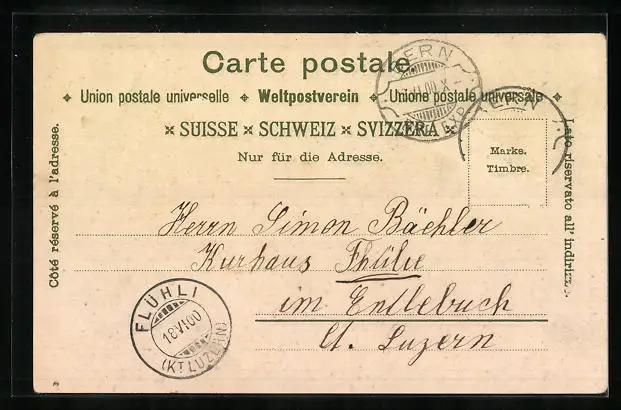 Carte postale.
✦ Union postale universelle ✦ Weltpostverein ✦ Unione postale universale ✦
× SUISSE × SCHWEIZ × SVIZZERA ×
Nur für die Adresse.
Côté réservé à l'adresse.
Lato riservato all' indirizzo.
Marke.
Timbre.
BERN
BERN
Herrn Simon Bächler
Kurhaus
im Entlebuch
Ct. Luzern
FLÜHLI
18 VI 00
(KT. LUZERN)